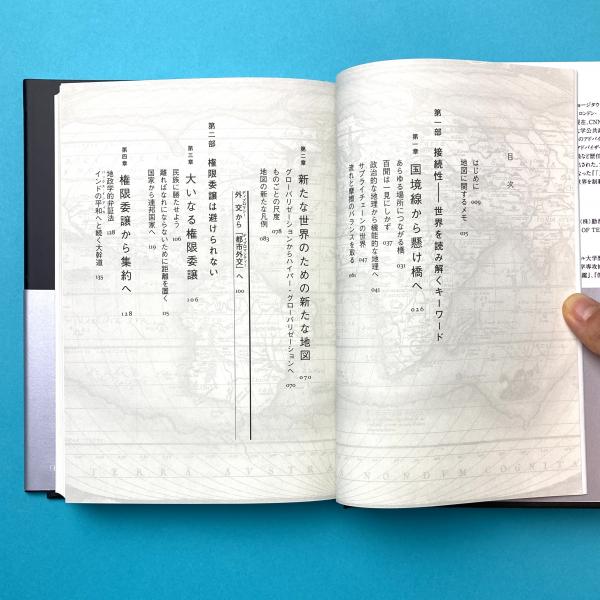 目次
はじめに 009
地図に関するメモ 015
第一部 接続性——世界を読み解くキーワード
第一章 国境線から懸け橋へ 026
あらゆる場所につながる橋 031
百聞は一見にしかず 037
政治的な地理から機能的な地理へ 041
サプライチェーンの世界 047
流れと摩擦のバランスを取る 061
第二章 新たな世界のための新たな地図 070
グローバリゼーションからハイパー・グローバリゼーションへ 070
ものごとの尺度 078
地図の新たな凡例 083
外交から「都市外交」へ 100
第二部 権限委譲は避けられない
第三章 大いなる権限委譲 106
民族に勝たせよう 106
離ればなれにならないために距離を置く 115
国家から連邦国家へ 119
第四章 権限委譲から集約へ 128
地政学的弁証法 128
インドの平和へと続く大幹道 135
TERRA AVSTRA
NONDVM COGNITA